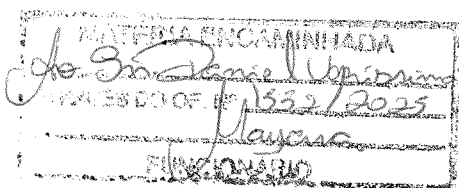 MATÉRIA ENCAMINHADA
Ao Sr. Daniel Veríssimo
ATRAVÉS DO OF. Nº 1332/2025
Mayara
FUNCIONÁRIO